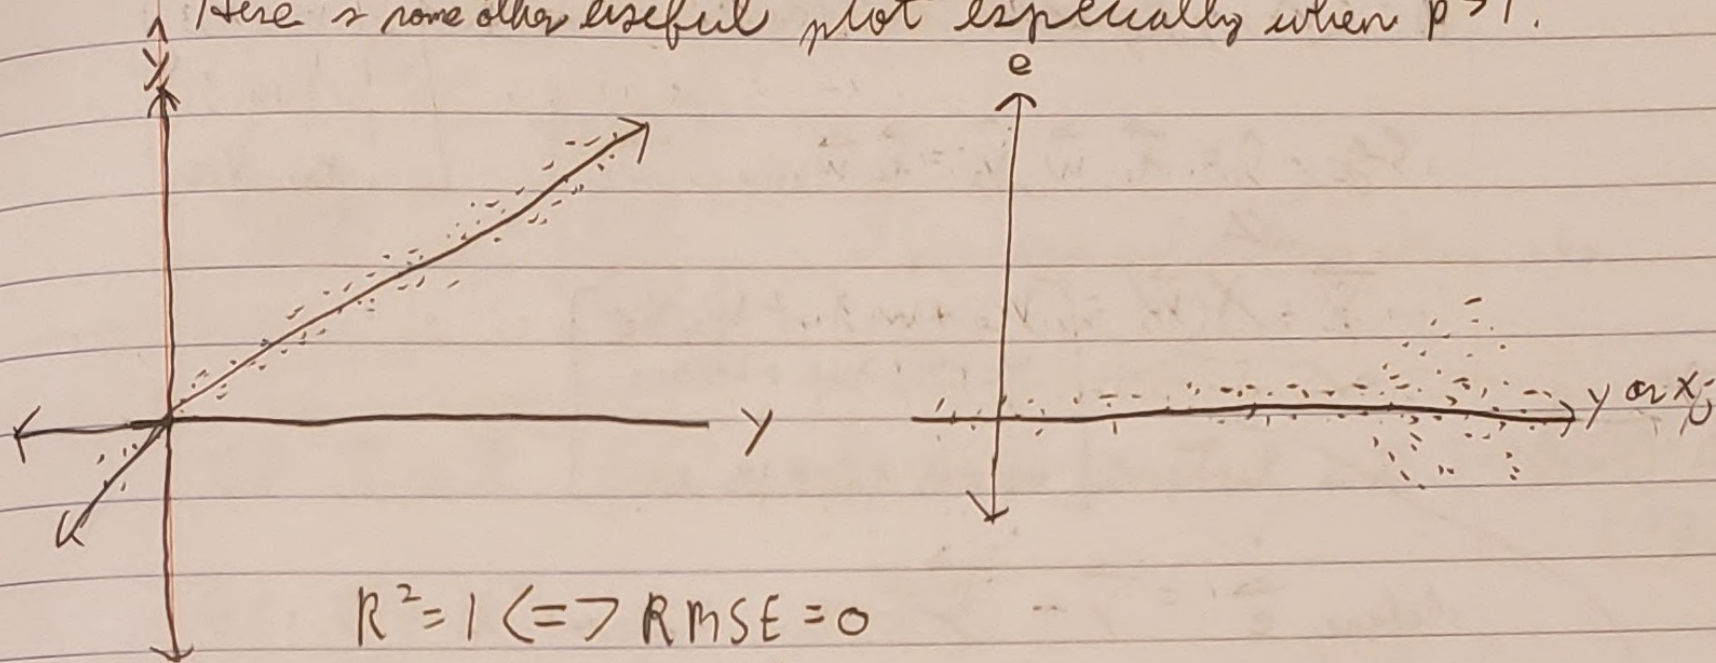 Here is some other useful plot especially when p>1.
ŷ
e
y
y or xj
R²=1 <=> RMSE=0